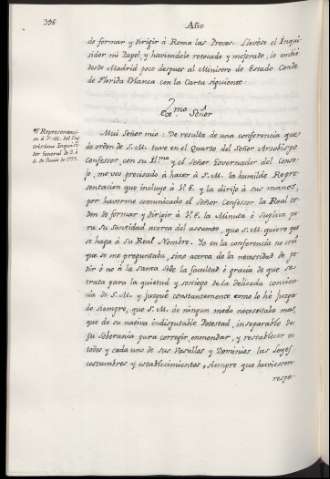 396
Año
de formar y dirigir à Roma las Preces. Llevóse el Inqui-
sidor mi Papel, y haviendole retenido y mejorado, le embió
desde Madrid poco despues al Ministro de Estado Conde
de Florida Blanca con la Carta siguiente.
Exmo. Señor
Mui Señor mio: De resulta de una conferencia que
de orden de S. M. tuve en el Quarto del Señor Arzobispo
Confessor, con su Ilma y el Señor Governador del Conse-
jo, me veo precisado à hacer à S. M. la humilde Repre-
sentacion que incluyo à V. E. y la dirijo à sus manos,
por haverme comunicado el Señor Confessor la Real or-
den de formar y dirigir à V. E. la Minuta ò Suplica pa-
ra su Santidad acerca del assunto, que S. M. quiere que
se haga à su Real Nombre. Yo en la conferencia no creí
que se me preguntaba, sino acerca de la necesidad de pe-
dir ò no à la Santa Sede la facultad ò gracia de que se
trata para la quietud y sosiego de la delicada concien-
cia de S. M. y juzgué constantemente como lo hé juzga-
do siempre, que S. M. de ningun modo necesitaba mas,
que de su nativa indisputable Potestad, inseparable de
su Soberanía para corregir, enmendar, y restablecer en
todos y cada uno de sus Vasallos y Dominios las leyes,
costumbres y establecimientos, siempre que huviessen
respe-